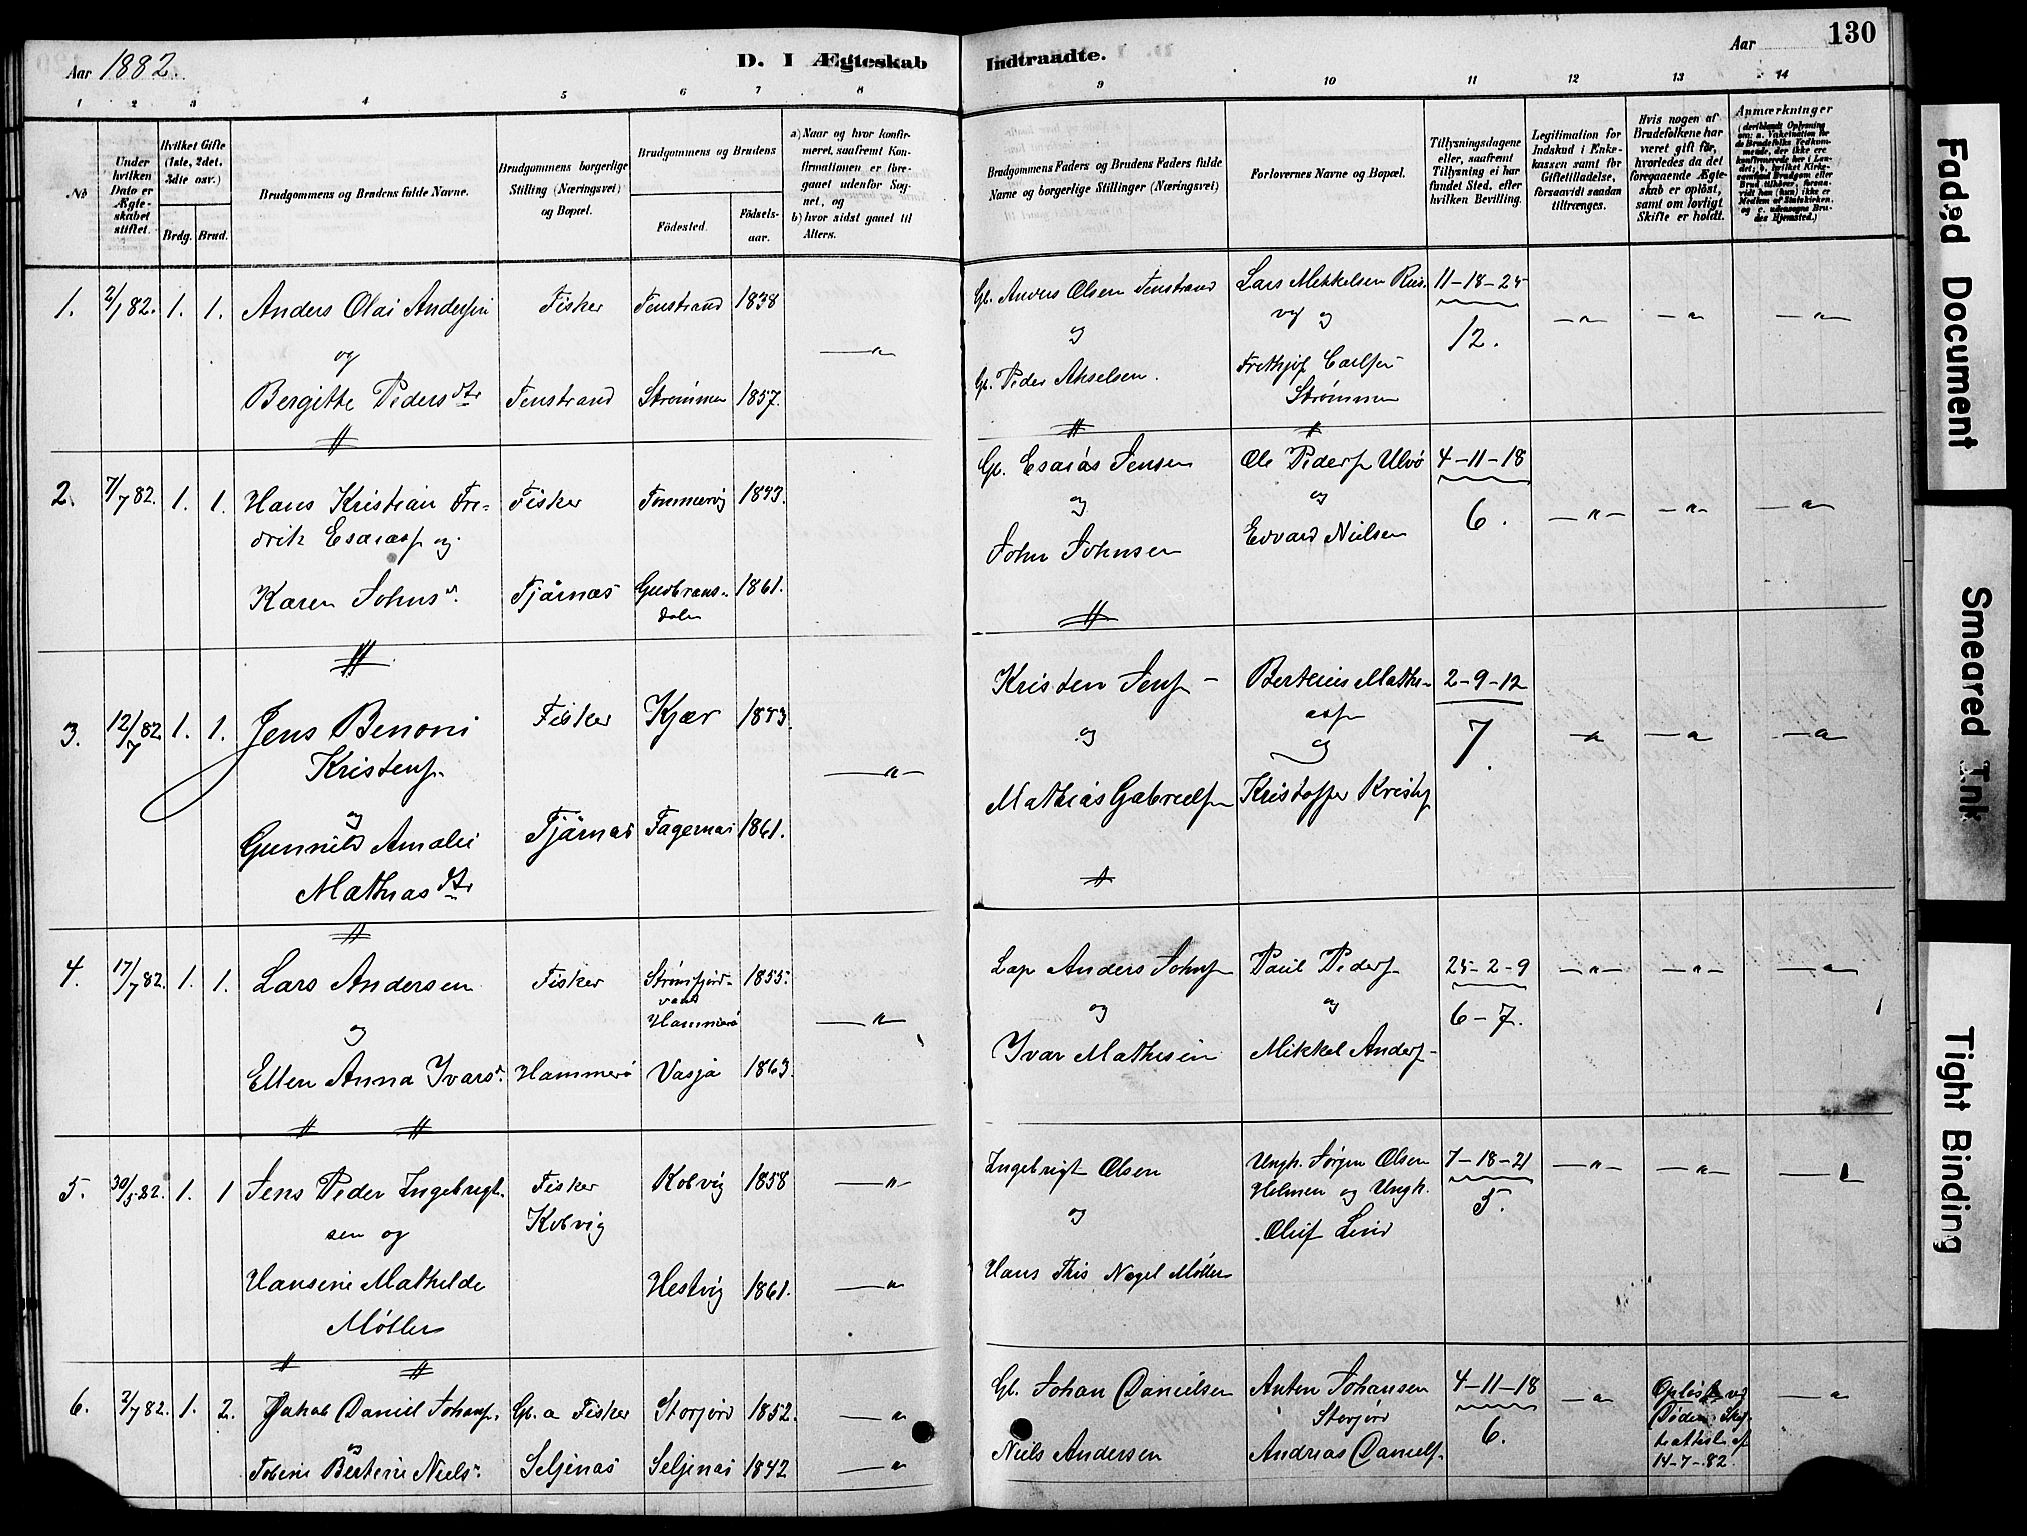 Aar 1882.
D. I Ægteskab Indtraadte.
Aar 130
1 2 3 4 5 6 7 8 9 10 11 12 13 14
No
Under hvilken Dato er Ægteskabet stiftet.
Hvilket Gifte (1ste, 2det, 3die osv.)
Brdg. Brud.
Brudgommens og Brudens fulde Navne.
Brudgommens borgerlige Stilling (Næringsvei) og Bopæl.
Brudgommens og Brudens
Födested.
Födselsaar.
a) Naar og hvor konfirmeret, saafremt Konfirmationen er foregaaet udenfor Sognet, og
b) hvor sidst gaaet til Alters.
Brudgommens Faders og Brudens Faders fulde Navne og borgerlige Stillinger (Næringsvei)
Forlovernes Navne og Bopæl.
Tillysningsdagene eller, saafremt Tillysning ei har fundet Sted, efter hvilken Bevilling.
Legitimation for Indskud i Enkekassen samt for Giftetilladelse, forsaavidt saadan tiltrænges.
Hvis nogen af Brudefolkene har været gift før, hvorledes da det foregaaende Ægteskab er opløst, samt om lovligt Skifte er holdt.
Anmærkninger
1. 2/1 82. 1. 1. Anders Olai Andersen Fisker Fenstrand 1838 Gl. Anders Olsen Fenstrand Lars Mekkelsen Rus. 11-18-25
og — " — og vg og 12. — " — — " — — " —
Bergitte Pedersdtr Fenstrand Strømmen 1857. Gl. Peder Akselsen. Frithjof Carlsen
Strømmen
2. 7/7 82. 1. 1. Hans Kristian Fre- Fisker 1843. Gl. Esaias Jensen Ole Peders Ulvö 4-11-18
drik Esaias og og og 6. — " — — " — — " —
Karen Johnsd. Tjårnæs Gudbrans- 1861. John Johnsen Edvard Nielsen
dalen
3. 12/7 82 1. 1. Jens Benoni Fisker Kjær 1843. Kristen Jens - Berteus Mathi- 2-9-12
Kristens. — " — og og 7. — " — — " — — " —
og
Gunnild Amalie Tjårnæs Fagernæs 1861. Mathias Gabriels Kristoffer Krists
Mathiasdtr
4. 17/7 82. 1. 1. Lars Andersen Fisker 1855. Lap Anders Johns Paul Peders 25-2-9 — " — — " — — " —
og Hammerö — " — og og 6-7.
Ellen Anna Ivarsd. Hammerö Vasja 1863. Ivar Mathisen Mikkel Anders -
5. 30/5 82. 1. 1 Jens Peder Ingebrigt- Fisker Kobvig 1858 — " — Ingebrigt Olsen Ungk. Jørgen Olsen 7-18-21 — " — — " —
sen og Kobvig og Holmen og Ungk. 5.
Oluf Lind
Hansine Mathilde Hestvig 1861. — " — Hans This Nagel Møller
Møller
6. 2/7 82. 1. 2. Jakob Daniel Johans. Gb. a Fisker Storjord 1852. — " — Gl. Johan Danielsen Anton Johansen 4-11-18 — " — Opløst ved — " —
og Storjord 6. Döden
Bertine Nielsd. Seljenæs Seljenæs 1842 — " — Niels Andersen Andreas Daniels.
14-7-82.
Faded Document
Smeared Ink
Tight Binding